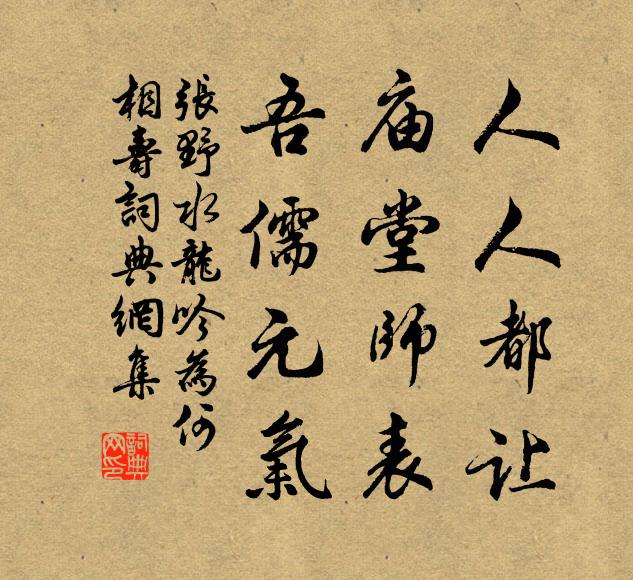 人人都让
庙堂師表
吾儒元氣
張野水龍吟為何
相壽詞典網集
詞典网印